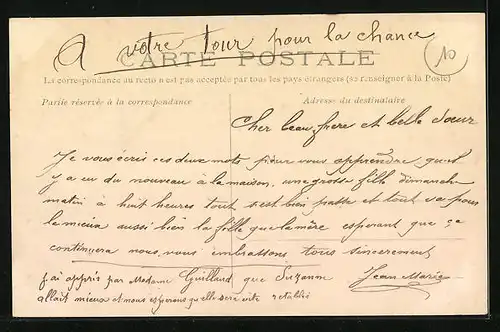 A votre tour pour la chance
10
CARTE POSTALE
La correspondance au recto n'est pas acceptée par tous les pays étrangers (se renseigner à la Poste)
Partie réservée à la correspondance
Adresse du destinataire
Cher beau frère et belle sœur
Je vous écris ces deux mots pour vous apprendre quil
y a eu du nouveau à la maison, une grosse fille dimanche
matin à huit heures tout s'est bien passé et tout va pour
le mieux aussi bien la fille que la mère esperont que ça
continuera nous vous embrassons tous sincerement
Jean Marie
j'ai appris par Madame Guilland que Suzanne
allait mieux et nous esperons qu'elle sera vite retablie